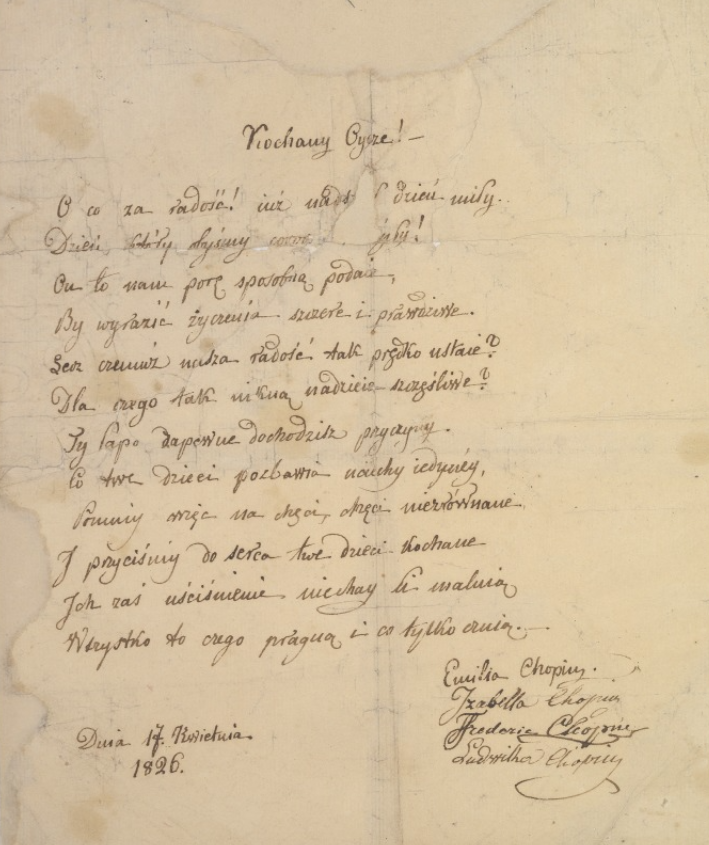 Kochany Oycze! —
O co za radość! już nads dzień miły.
Dzień, który
On to nam porę sposobną podaie,
By wyrazić życzenia szczere i prawdziwe.
Lecz czemuż nasza radość tak prędko ustaie?
Dla czego tak nikną nadzieie szczęśliwe?
Ty Papo zapewne dochodzisz przyczyny.
Co twe dzieci pozbawia nauki iedynéy,
Pomniy więc na chęci, chęci niezrównane
I przyciśniy do serca twe dzieci kochane
Ich zaś uściśnienie niechay Ci maluią
Wszystko to czego pragną i co tylko czuią. —
Emilia Chopin.
Izabella Chopin
Frederic Chopin,
Ludwika Chopin
Dnia 17. Kwietnia.
1826.